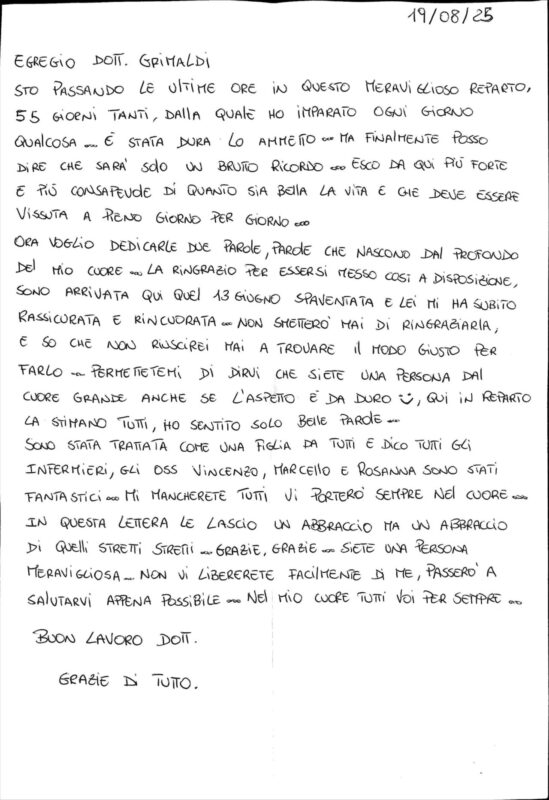 19/08/25
EGREGIO DOTT. GRIMALDI
STO PASSANDO LE ULTIME ORE IN QUESTO MERAVIGLIOSO REPARTO,
55 GIORNI TANTI, DALLA QUALE HO IMPARATO OGNI GIORNO
QUALCOSA ... È STATA DURA LO AMMETTO ... MA FINALMENTE POSSO
DIRE CHE SARA' SOLO UN BRUTTO RICORDO ... ESCO DA QUI PIÙ FORTE
E PIÙ CONSAPEVOLE DI QUANTO SIA BELLA LA VITA E CHE DEVE ESSERE
VISSUTA A PIENO GIORNO PER GIORNO ...
ORA VOGLIO DEDICARLE DUE PAROLE, PAROLE CHE NASCONO DAL PROFONDO
DEL MIO CUORE ... LA RINGRAZIO PER ESSERSI MESSO COSI A DISPOSIZIONE,
SONO ARRIVATA QUI QUEL 13 GIUGNO SPAVENTATA E LEI MI HA SUBITO
RASSICURATA E RINCUORATA ... NON SMETTERO' MAI DI RINGRAZIARLA,
E SO CHE NON RIUSCIREI MAI A TROUARE IL MODO GIUSTO PER
FARLO ... PERMETTETEMI DI DIRVI CHE SIETE UNA PERSONA DAL
CUORE GRANDE ANCHE SE L'ASPETTO È DA DURO ☺, QUI IN REPARTO
LA STIMANO TUTTI, HO SENTITO SOLO BELLE PAROLE ...
SONO STATA TRATTATA COME UNA FIGLIA DA TUTTI E DICO TUTTI GLI
INFERMIERI, GLI OSS VINCENZO, MARCELLO E ROSANNA SONO STATI
FANTASTICI ... MI MANCHERETE TUTTI VI PORTERO' SEMPRE NEL CUORE ...
IN QUESTA LETTERA LE LASCIO UN ABBRACCIO MA UN ABBRACCIO
DI QUELLI STRETTI STRETTI ... GRAZIE, GRAZIE ... SIETE UNA PERSONA
MERAVIGLIOSA ... NON VI LIBERERETE FACILMENTE DI ME, PASSERO' A
SALUTARVI APPENA POSSIBILE ... NEL MIO CUORE TUTTI VOI PER SEMPRE ...
BUON LAVORO DOTT.
GRAZIE DI TUTTO.